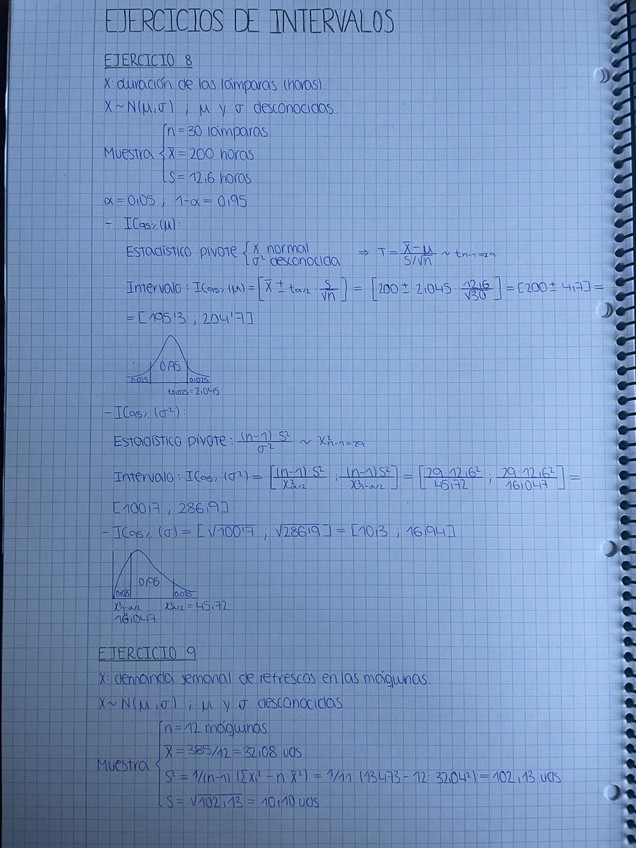 EJERCICIOS DE INTERVALOS
EJERCICIO 8
X: duración de las lámparas (horas)
X ~ N(μ,σ) ; μ y σ desconocidas
Muestra { n = 30 lámparas
x̄ = 200 horas
S = 12,6 horas
α = 0,05 ; 1-α = 0,95
- IC95% (μ):
Estadístico pivote { X normal
σ² desconocida ⇒ T = (x̄ - μ)/(S/√n) ~ tn-1=29
Intervalo: IC95% (μ) = [x̄ ± tα/2 · S/√n] = [200 ± 2,045 · 12,6/√30] = [200 ± 4,7] =
= [195'3 , 204'7]
0,025 0,95 0,025
t0,025 = 2,045
- IC95% (σ²):
Estadístico pivote: (n-1) S²/σ² ~ χ²n-1=29
Intervalo: IC95% (σ²) = [(n-1) S²/χ²α/2 ; (n-1) S²/χ²1-α/2] = [29·12,6²/45,72 ; 29·12,6²/16,047] =
[100'7 , 286,9]
- IC95% (σ) = [√100'7 , √286,9] = [10,3 , 16,94]
0,025 0,95 0,025
χ²1-α/2 χ²α/2 = 45,72
16,047
EJERCICIO 9
X: demanda semanal de refrescos en las máquinas
X ~ N(μ,σ) ; μ y σ desconocidas
Muestra { n = 12 máquinas
x̄ = 385/12 = 32,08 uds
S² = 1/(n-1) (Σxi² - n x̄²) = 1/11 (13473 - 12 · 32,04²) = 102,13 uds
S = √102,13 = 10,10 uds